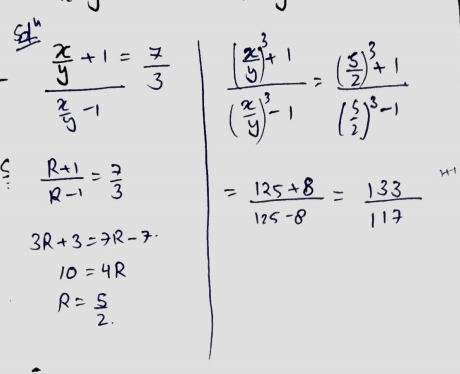 Solⁿ
(x/y + 1)/(x/y - 1) = 7/3
(R+1)/(R-1) = 7/3
3R+3=7R-7.
10=4R
R= 5/2.
((x/y)³+1)/((x/y)³-1) = ((5/2)³+1)/((5/2)³-1)
= (125+8)/(125-8) = 133/117